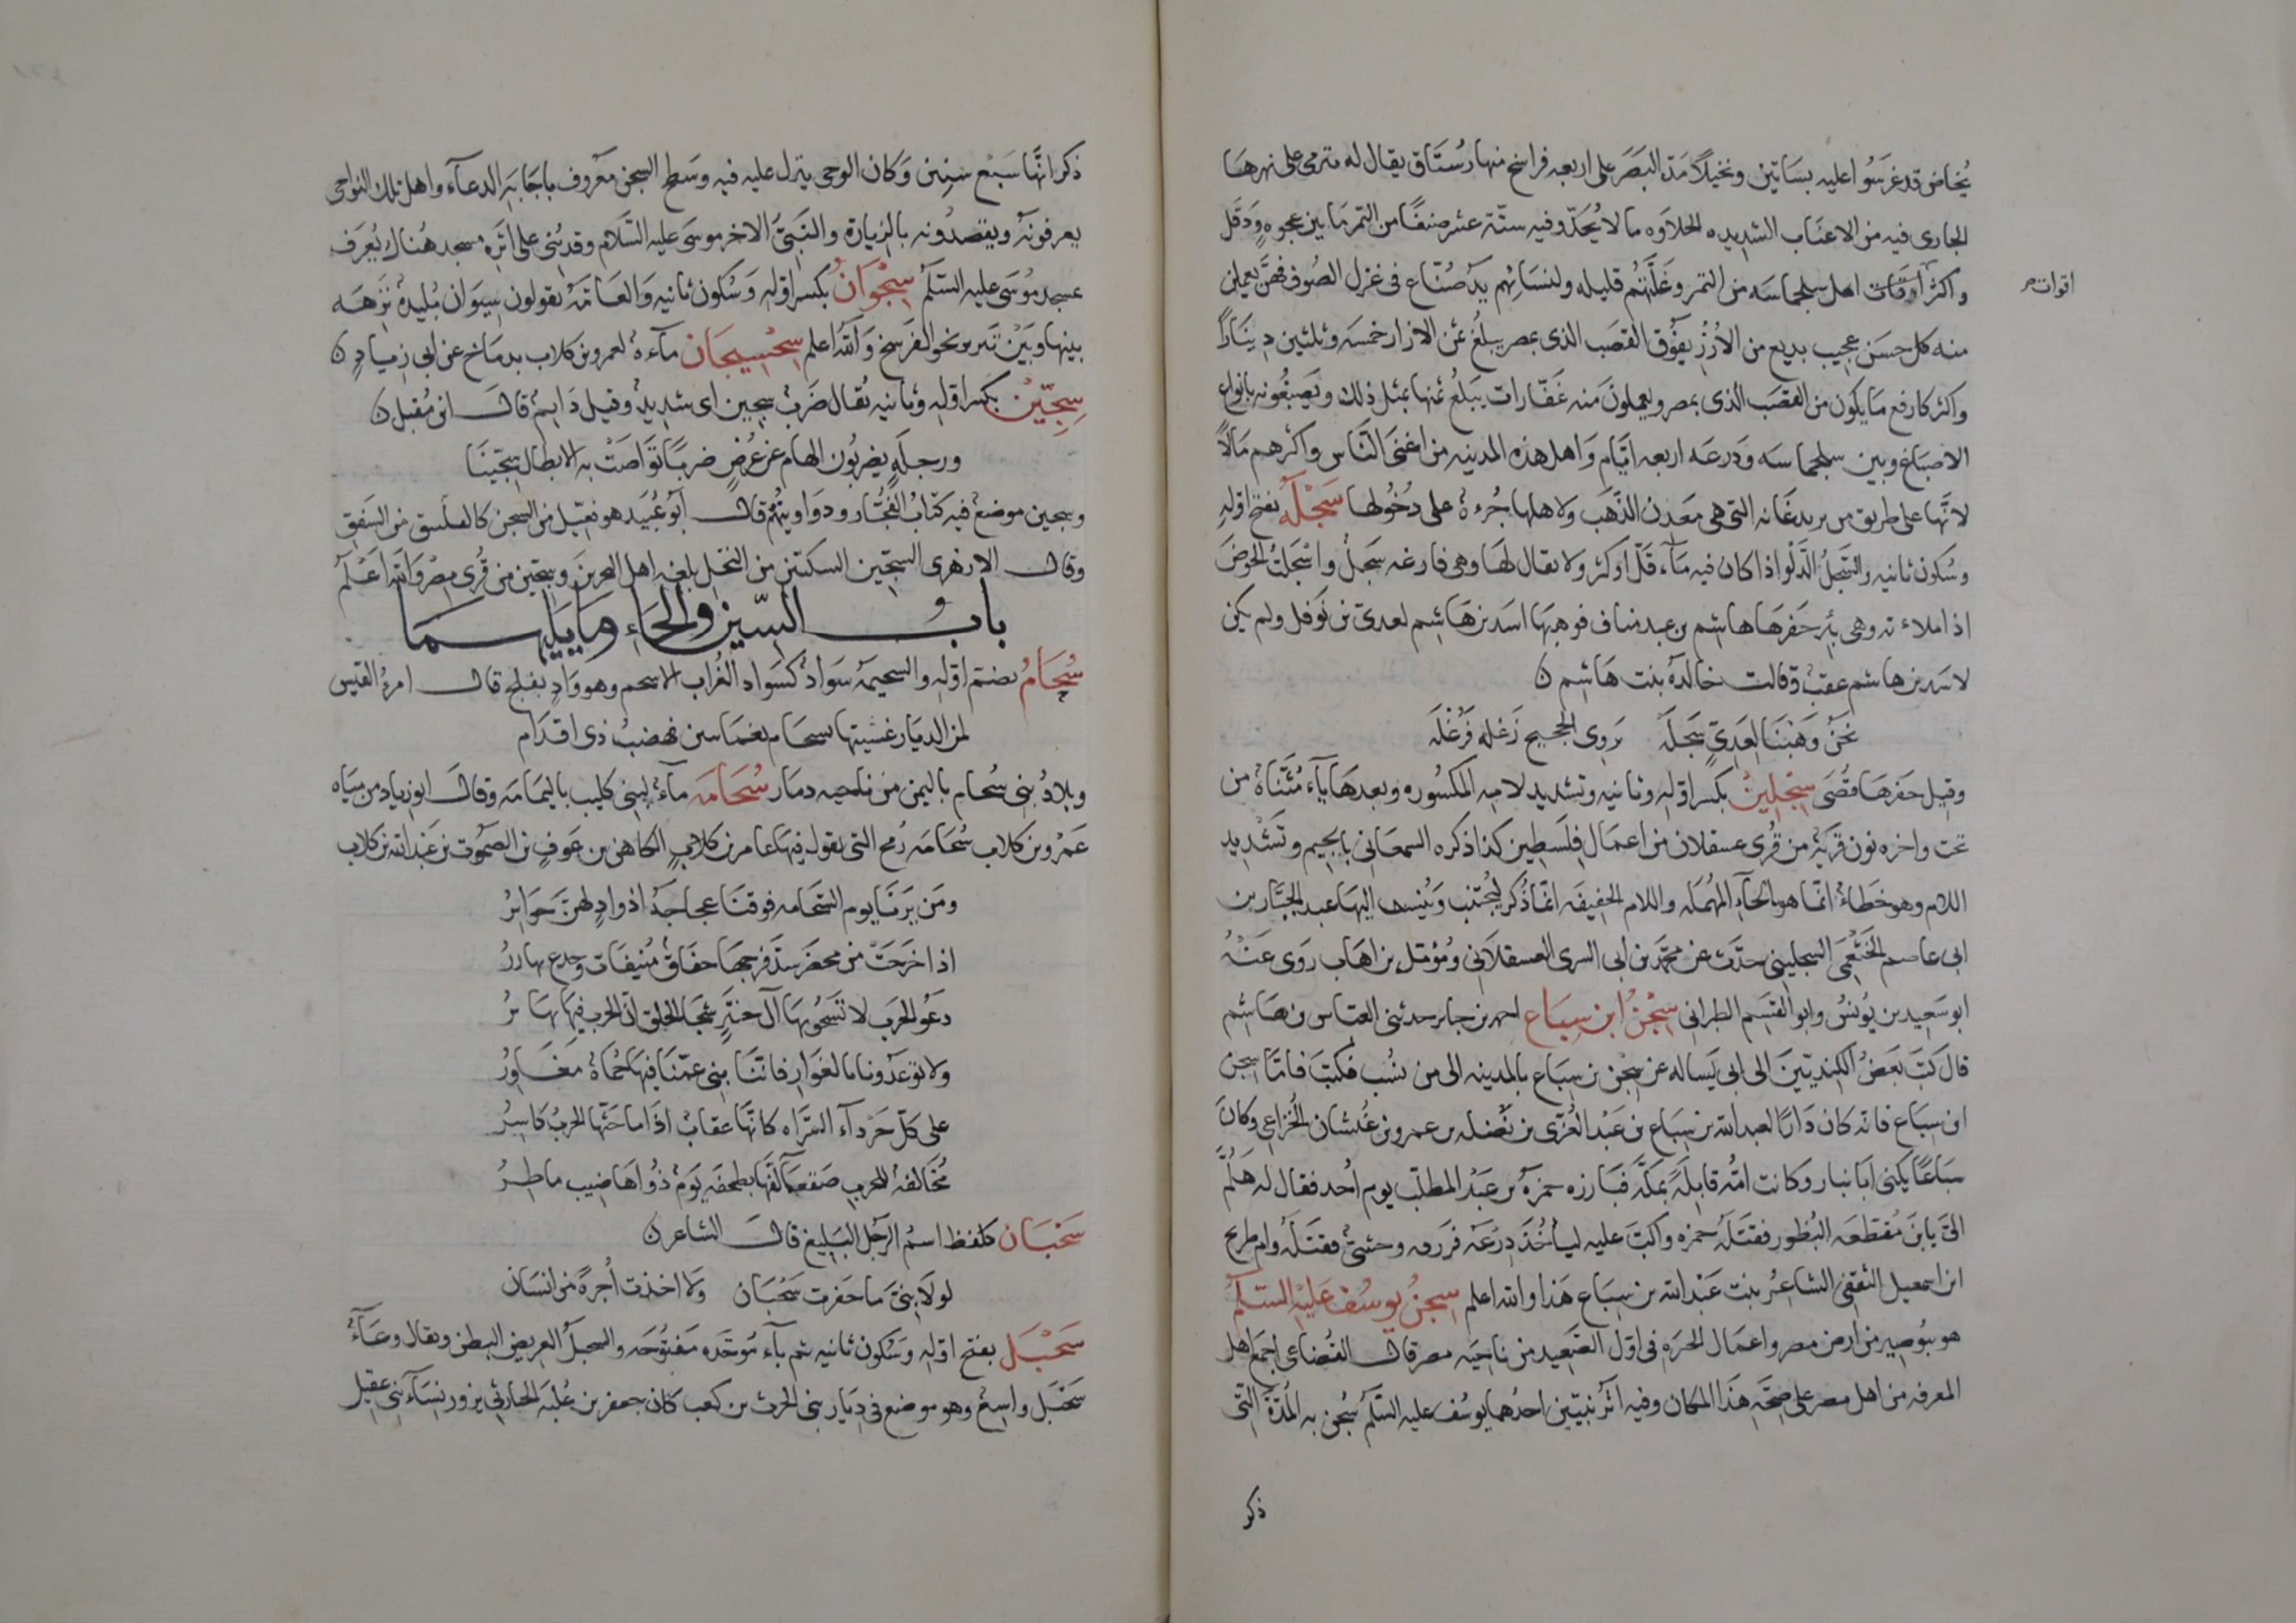 يُخاض قد غرسُوا عليه بسَاتين ونخيلًا مَدّ البَصَر على اربعه فراسخ منها رُستَاق يقال له تيرمى على نهرهَا
الجارى فيه من الاعنَاب الشديده الحلاوَه ما لا يُحَدّ وفيه ستّة عشر صنفًا من التمر مَا بين عجوهٍ وَدَقَل
واكثر اَوقات اهل سجلماسَه من التمر وغلّتهُم قليله ولنسَائهم يدٌ صُنّاع فى غزل الصُوف فهُنّ يعملن
اقوات صح
منه كل حسَن عجيب بديع من الاُزُر يفُوق القصَب الذى بمصر يبلغ ثمن الازار خمسَه وثلثين دينَارًا
واكثر كارفع مَا يكون من القصَب الذى بمصر ويعملونَ منه غفّارات يبلغُ ثمنها بمثل ذلك ويَصبغُونه بانواع
الاصبَاغ وبين سجلماسَه وَدرعَه اربعه ايّام وَاهل هذه المدينه من اغنى النّاس واكثرهم مَالًا
لانَّها على طريق من يريد غانه التى هى معَدن الذَّهَب ولاهلها جُرءةٌ على دُخُولها سَجْلَهُ بفتح اوّلهِ
وسُكون ثانيه والسَّجلُ الدَّلو اذا كان فيه مَآء قَلّ او كثر ولا يقال لهَا وهى فارغه سَجلٌ واسْجَلتُ الحَوضَ
اذا ملاءته وهى بِئر حَفرهَا هاشم بن عبد مناف فوهبَها اسَد بن هَاشم لعدىّ بن نَوفل ولم يكن
لاسَد بن هاشم عقبٌ وقالت خالدَهُ بنت هَاشم ن
نحنُ وَهَبنَا لعَدِىّ سَجلَه تروى الحجيج زَغلهً فزَغلَه
وقيل حَفرهَا قصَُى سِجْلِيْنُ بكسر اوّله وثانيه وتشديد لامِه المكسُوره وبعدهَا يآء مُثنَّاةٌ من
تحت واخره نون قريَةٌ من قُرى عسقلان من اعمَال فلسطين كذا ذكره السمعَانى بالجيم وتَشْديد
اللام وهو خطَاءٌ انّما هو بالحآءِ المهُمَله واللام الخفيفَه انّما ذُكر ليُجتنب وَيُنسب اليهَا عبد الجبّار بن
ابى عاصم الخَثْعَمِى السجلينى حدّث عن محمّد بن ابى السرى العسقلَانى ومُؤمّل بن اهَاب رَوى عَنْهُ
ابو سَعيد بن يُونسُ وابو القسَم الطبرانى سِجْنُ ابن سِبَاع احمد بن جابر حدثنى العبّاس بن هَاشم
قال كتَبَ بَعضُ الكِنديّينَ الى ابى يَسَاله عن سِجن بن سِبَاع بالمدينه الى من نُسب فكتبَ فامّا سجن
ابن سِبَاع فانّه كان دَارًا لعبد الله بن سِبَاع بن عَبْد العُزّى بن نَضله بن عمرو بن غُبشان الخُزاعى وكانَ
سَبَاعًا يكنى ابَا نيار وكانت امّهُ قابلَةً بمكّه فبَارزه حمزةُ بن عَبْد المطلب يوم اُحد فقال له هَلُمَّ
الىَّ يا بنَ مُقطّعَه البُظور فقتلَهُ حمزه واكبّ عليه ليَاخُذَ دِرعَه فزرقه وحشىٌّ فقتلَهُ وام طريح
ابن اسمعيل الثقفى الشاعرُ بنت عَبْد الله بن سِبَاع هَذا والله اعلم سجنُ يوسُفَ عَليْه السّلمُ
هو ببُوصيرَ من ارض مصر واعمَال الجيزه فى اوّل الصَّعيد من ناحيَه مصر قال القُضاعى اجمَع اهل
المعرفه من اهل مصر على صِحّه هذَا المكان وفيه اثرُ نبيّين احدُهما يوسُف عليه السَّلمُ سُجن به المُدّة التّى
ذكر
ذكر انّهَا سَبْع سنِين وَكان الوحى ينزل عليه فيه وسَطح السجن معرُوف باجابَه الدعآء واهل تلك النواحى
يعرفونَهُ ويقصدُونه بالزيارة والنَّبىّ الاخر موسَى عليه السَّلام وقد بُنى على اثَرِه مسجد هُناك يُعرَف
بمسجد مُوسَى عليه السّلَمُ سِجْوَانُ بكسر اوّله وَسُكون ثانيه وَالعَامّهُ يقولون سِيوَان بُليدهٌ نزهَه
بينها وبَيْنَ تبريز نحو الفَرسخ وَالله اعلم سِجِسِيجَان مآءةٌ لعمرو بن كلاب بدمَاخ عن ابى زيَادٍ ن
سِجّيْنُ بكسر اوّله وثانيه يُقال ضَربٌ سِجين اى شديدٌ وقيل دَايمٌ قال ابن مُقبل ن
ورجلَهٍ يضربُون الهام عن عُرُضٍ ضربًا تَوَاصَتْ به الابطال سِجّينَا
وسِجين موضعٌ فيه كتابُ الفُجّار ودَوَاوينُهم قال ابُو عُبَيد هو فعّيل من السجن كالفسّيق من الفسق
وقال الازهرى السِجّين السكتين من النخل بلغه اهل البحرين وَسِجّين من قُرى مصر وَالله اَعْلَم
بابُ السّين والحَآء وما يليهمَا
سُحَامُ بضَم اوّله والسحيمَهُ سَوادٌ كسَواد الغُراب الاسحم وهو وادٍ بفلج قال امرُؤ القيس
لمن الديَار غشيتها بسحَام فعمَايتين فهضب ذى اقدَام
وبلادُ بنى سُحام باليمن من ناحيه ذمَار سُحَامَه مآءٌ لبنى كليب باليمَامَه وقال ابو زياد من ميَاه
عَمْرو بن كلاب سُحَامَه رُمح التى يقول فيهَا عامر بن كلابٍ الكاهن بن عَوفٍ بن الصمُوت بن عَبْد الله بن كلاب
ومَن يَرنَا يوم السّحَامه فوقنَا عجاجَةُ اذوادٍ لهنّ حَوَايرُ
اذا خَرَجَتْ من محضَر سدّ فرجهَا خفَافٌ مُنيفَات وجدع بهازرُ
دَعُو الحَرب لا تَسْحَُوا بهَا آل خنثَرٍ شجَا الحلق انّ الحرب فيهَا تهَابرُ
ولا توعدُونا بالغوَار فانّنَا بنى عمّنَا فيهَا حُماهٌ مغَاورُ
على كلّ جَرْدآء السّراه كانّهَا عقابٌ اذَا ما حَثّهَا الحربُ كاسِرُ
مُحَالفه للحرب صَقعَآ لفّها بطخفَه يَومٌ ذُو اهَاضيب ماطِرُ
سَحْبَان كلفظ اسمُ الرَّجُل البَليغ قال الشاعر ن
لولَا بنىّ مَا حَفرت سَحْبَان وَلا اخذت اُجرةً من انسَان
سَحْبَل بفتح اوّله وسُكون ثانيه ثم بآء مُوحّده مَفتُوحَه والسحبلُ العريض البطن ويقال وعَآءٌ
سَحْبَل واسِعٌ وهو موضع فى ديَار بنى الحرث بن كعب كان جعفر بن عُلبَه الحارثى يزور نسَآء بَنى عقيل